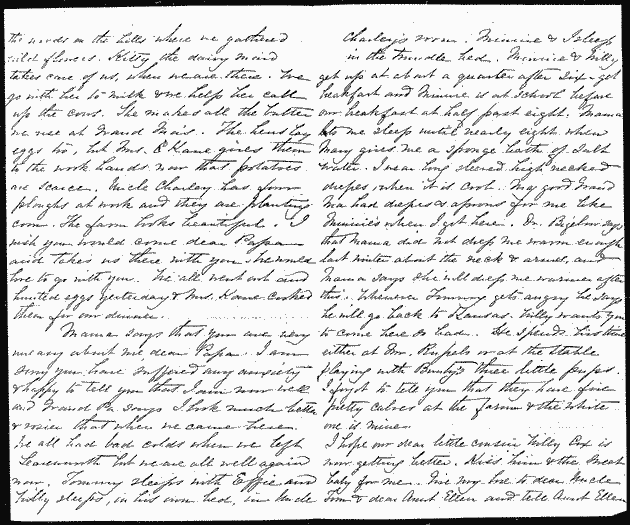 the woods on the hills where we gathered
wild flowers. Kitty the dairy maid
takes care of us, when we are there. We
go with her to milk & we help her call
up the cows. She makes all the butter
we use at Grand Ma's. The hens lay
eggs too, but Mrs. Kane gives them
to the work hands now that potatoes
are scarce. Uncle Charley has four
ploughs at work and they are planting
corn. The farm looks beautiful. I
wish you would come dear Papa
and take us there with you. We would
love to go with you. We all went out and
hunted eggs yesterday & Mrs. Kane cooked
them for our dinner.
Mama says that you are very
uneasy about me dear Papa. I am
sorry you have suffered any anxiety
& happy to tell you that I am now well
and Grand Pa says I look much better
& rosier than when we came here.
We all had bad colds when we left
Leavenworth but we are all well again
now. Tommy sleeps with Effie and
Willy sleeps, in his own bed, in Uncle
Charley's room. Minnie & I sleep
in the trundle bed. Minnie & Willy
get up at about a quarter after six & get
breakfast and Minnie is at school before
our breakfast at half past eight. Mama
lets me sleep until nearly eight when
Mary gives me a sponge bath of salt
water. I wear long sleeved high necked
dresses, when it is cool. My good Grand
Ma had dresses & aprons for me like
Minnie's when I got here. Dr. Bigelow says
that Mama did not dress me warm enough
last winter about the neck & arms, and
Mama says she will dress me warmer after
this. Whenever Tommy gets angry he says
he will go back to Kansas. Willy wants you
to come here so bad. He spends his time
either at Mr. or at the stable
playing with three little pups.
I forgot to tell you that they have five
pretty calves at the farm & the white
one is mine.
I hope our dear little cousin Willy Cox is
now getting better. Kiss him & the sweet
baby for me. Give my love to dear Uncle
Tom & dear Aunt Ellen and tell Aunt Ellen